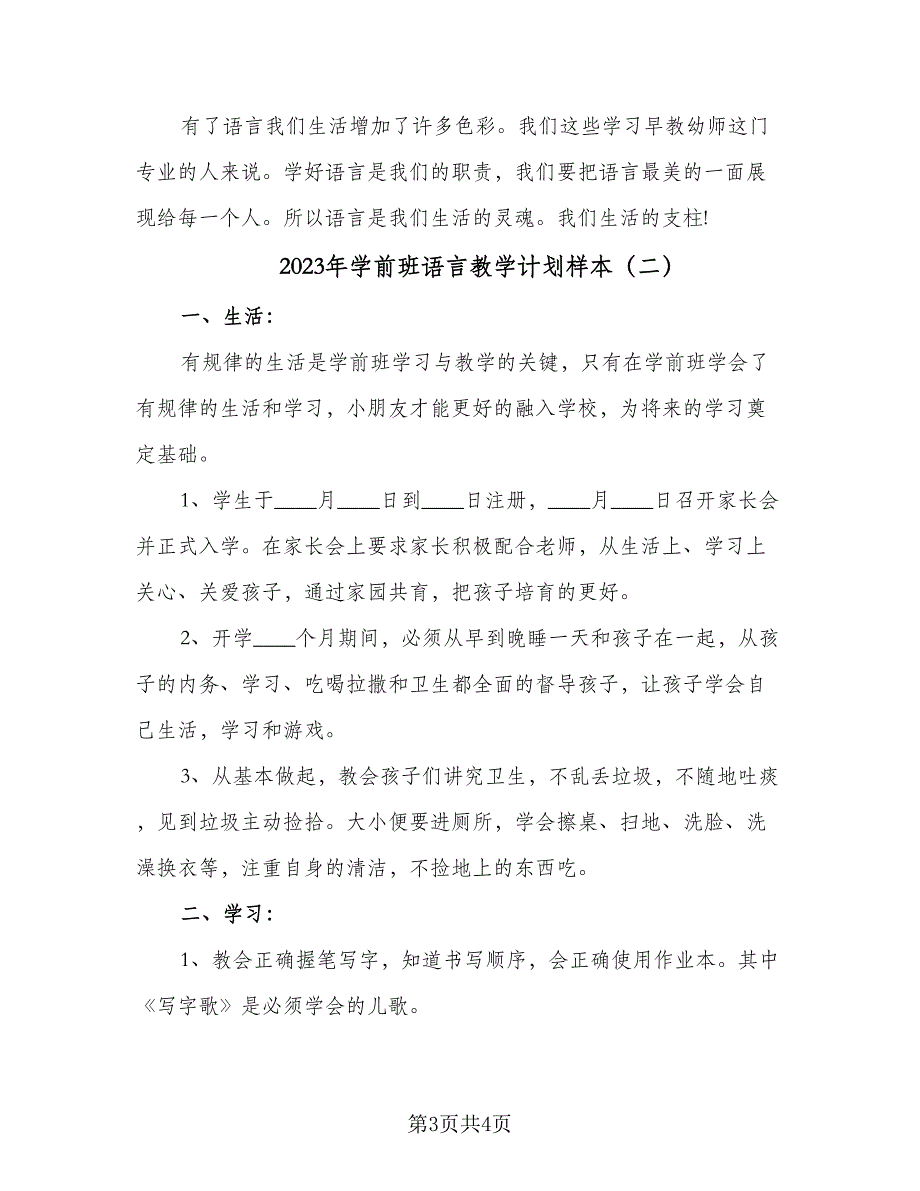 有了语言我们生活增加了许多色彩。我们这些学习早教幼师这门
专业的人来说。学好语言是我们的职责，我们要把语言最美的一面展
现给每一个人。所以语言是我们生活的灵魂。我们生活的支柱!
2023年学前班语言教学计划样本（二）
一、生活：
有规律的生活是学前班学习与教学的关键，只有在学前班学会了
有规律的生活和学习，小朋友才能更好的融入学校，为将来的学习奠
定基础。
1、学生于____月____日到____日注册，____月____日召开家长会
并正式入学。在家长会上要求家长积极配合老师，从生活上、学习上
关心、关爱孩子，通过家园共育，把孩子培育的更好。
2、开学____个月期间，必须从早到晚睡一天和孩子在一起，从孩
子的内务、学习、吃喝拉撒和卫生都全面的督导孩子，让孩子学会自
己生活，学习和游戏。
3、从基本做起，教会孩子们讲究卫生，不乱丢垃圾，不随地吐痰
，见到垃圾主动捡拾。大小便要进厕所，学会擦桌、扫地、洗脸、洗
澡换衣等，注重自身的清洁，不捡地上的东西吃。
二、学习：
1、教会正确握笔写字，知道书写顺序，会正确使用作业本。其中
《写字歌》是必须学会的儿歌。
第3页共4页